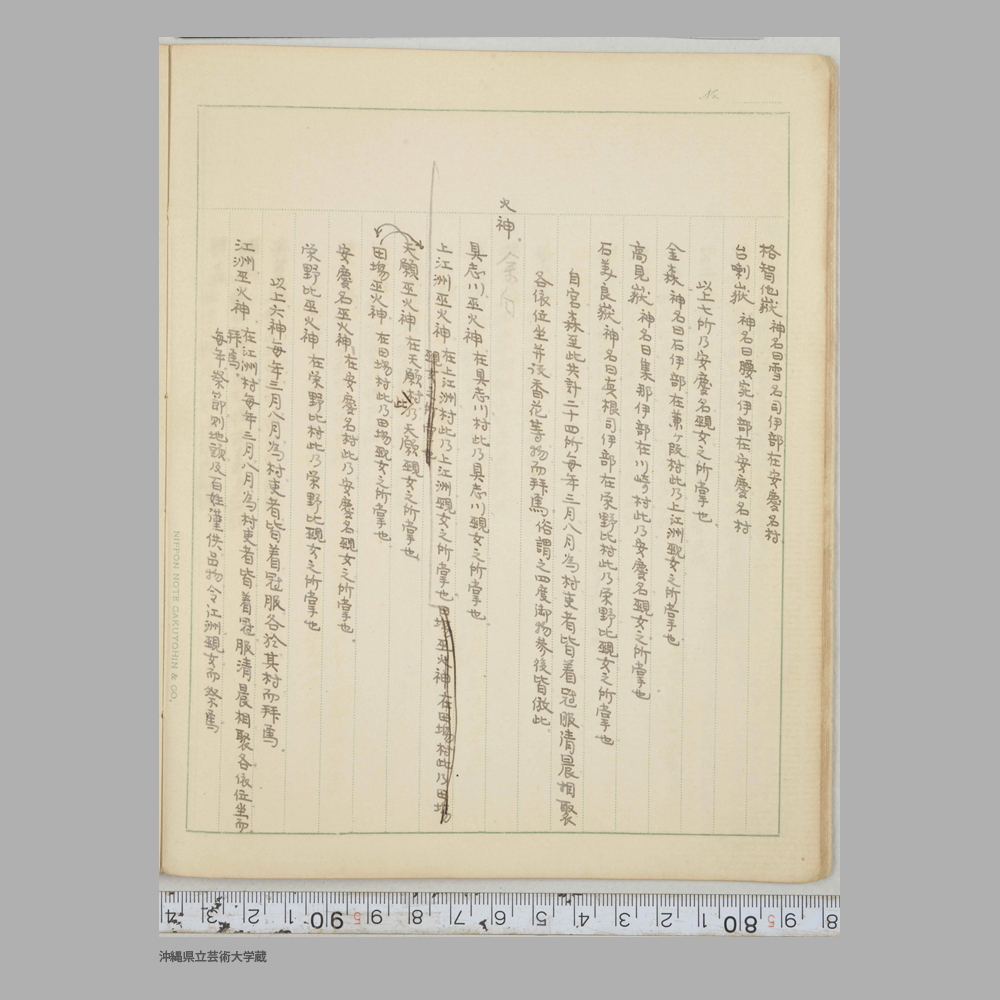 No.
格智他嶽 神名曰雪名司伊部在安慶名村
台喇嶽 神名曰腰宛伊部在安慶名村
以上七所乃安慶名覡女之所掌也。
金森 神名曰石伊部在兼ケ段村此乃上江洲覡女之所掌也。
高見嶽 神名曰集那伊部在川崎村此乃安慶名覡女之所掌也。
石美良嶽 神名曰英根司伊部在栄野比村此乃栄野比覡女之所掌也
自宮森至此共計二十四所每年三月八月為村吏者皆着冠服清晨相聚
各依位坐并設香花等物而拝焉俗謂之四度御物参後皆倣此。
火神。
具志川巫火神 在具志川村此乃具志川覡女之所掌也。
上江洲巫火神 在上江洲村此乃上江洲覡女之所掌也。田場巫火神在田場村此乃田場
覡女之所掌也
天願巫火神 在天願村此乃天願覡女之所掌也
田場巫火神 在田場村此乃田場覡女之所掌也。
安慶名巫火神 在安慶名村此乃安慶名覡女之所掌也。
栄野比巫火神 在栄野比村此乃栄野比覡女之所掌也
以上六神每年三月八月為村吏者皆着冠服各於其村而拝焉。
江洲巫火神 在江洲村每年三月八月為村吏者皆着冠服清晨相聚各依位坐而
拝焉。
每年祭節則地頭及百姓謹供品物令江洲覡女而祭焉
NIPPON NOTE GAKUYOHIN & CO.
4 3 2 1 90 9 8 7 6 5 4 3 2 1 80 9 8
沖縄県立芸術大学蔵